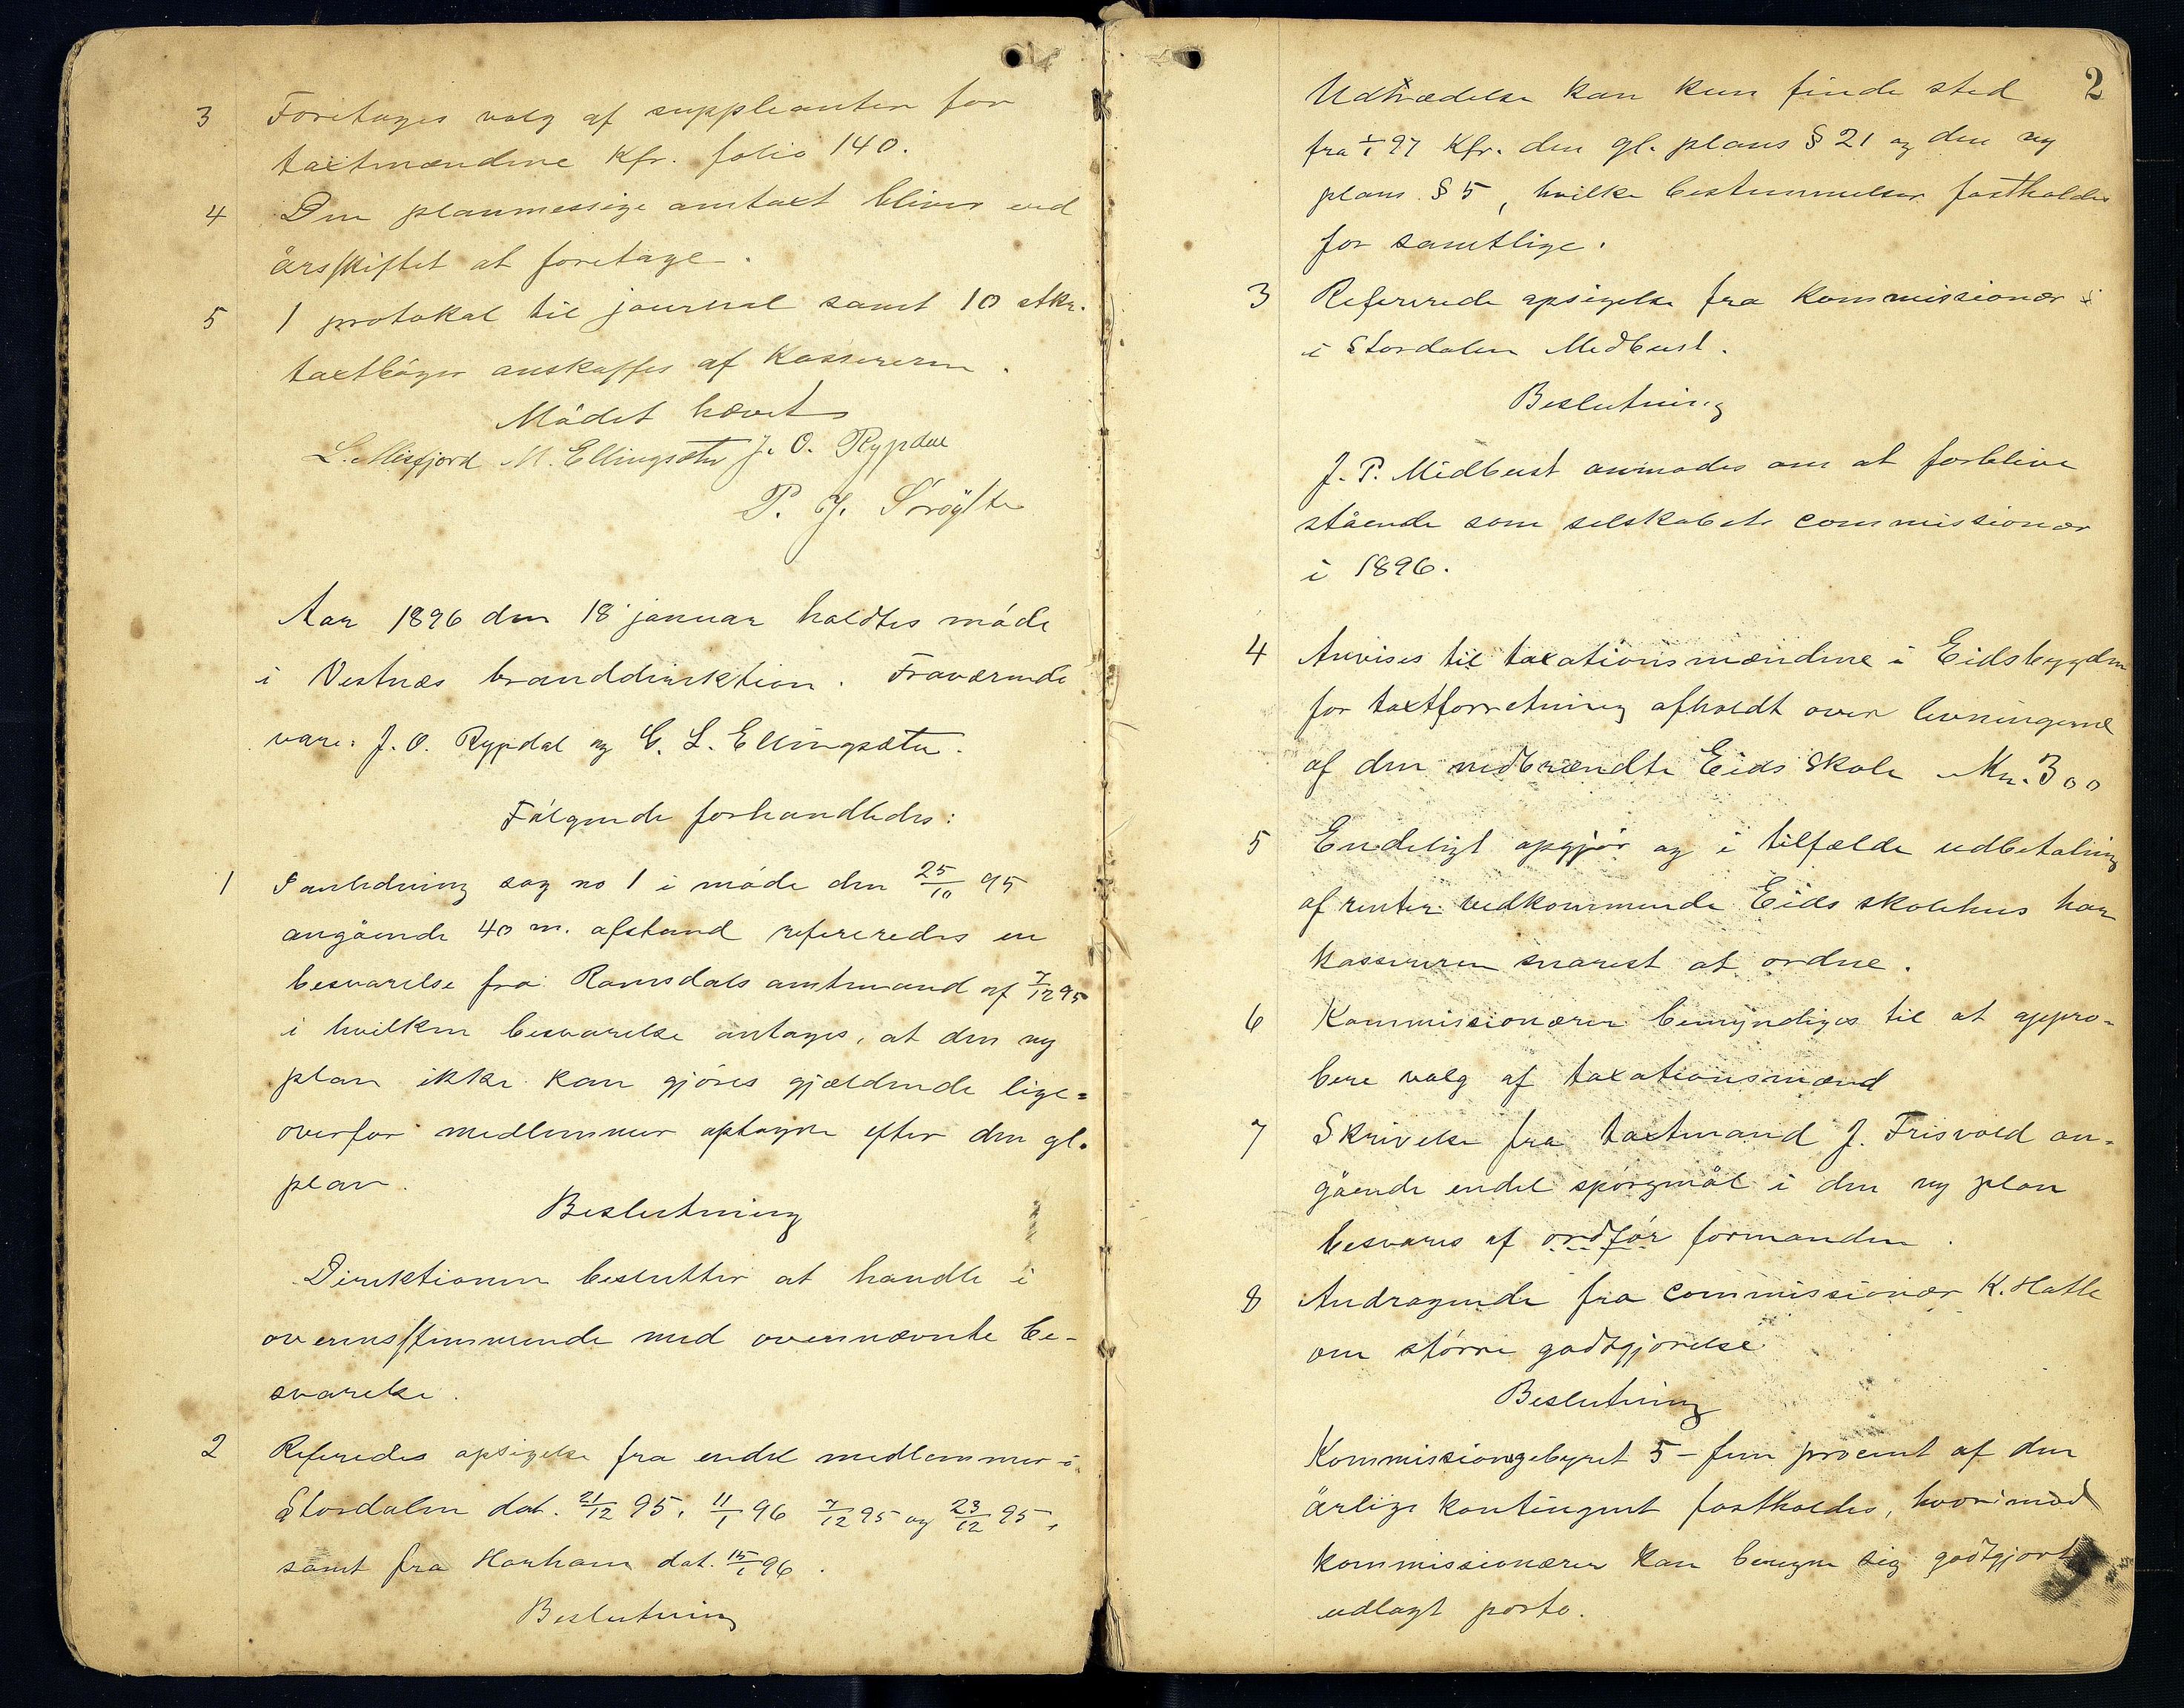 3 Foretages valg af suppleanter for
taxtmændene Kfr. folio 140.
4 Den planmessige omtaxt bliver ved
årsskiftet at foretage.
5 1 protokol til journal samt 10 stkr.
taxtbøger anskaffes af Kassereren.
Mødet hævet
L. Misfjord M. Ellingsæter J. O. Rypdal
P. J.
Aar 1896 den 18 januar holdtes møde
i Vestnæs branddirektion. Fraværende
vare: J. O. Rypdal og C. L. Ellingsæter.
Følgende forhandledes:
1 I anledning sag no 1 i møde den 25/10 95
angående 40 m. afstand refereredes en
besvarelse fra Romsdals amtmand af 7/12 95
i hvilken besvarelse antages, at den ny
plan ikke kan gjøres gjældende lige=
overfor medlemmer optagne efter den gl.
plan.
Beslutning
Direktionen beslutter at handle i
overensstemmende med ovennævnte be-
svarelse.
2 Referedes opsigelse fra endel medlemmer i
Stordalen dat. 21/12 95, 11/1 96 7/12 95 og 23/12 95,
samt fra Harham dat. 15/1 96.
Beslutning
2
Udtrædelse kan kun finde sted
fra 1/1 97 Kfr. den gl. plans § 21 og den ny
plans § 5, hvilke bestemmelser fastholdes
for samtlige.
3 Refererede opsigelse fra Kommissionær i
i Stordalen Midbust.
Beslutning
J. P. Midbust anmodes om at forblive
stående som selskabets commissionær
i 1896.
4 Anvises til taxationsmændene i Eidsbygden
for taxtforretning afholdt over levningerne
af den nedbrændte Eids Skole Kr. 300
5 Endeligt opgjør og i tilfælde udbetaling
af renter vedkommende Eids skolehus har
kassereren snarest at ordne.
6 Kommissionæren bemyndiges til at appro-
bere valg af taxationsmænd
7 Skrivelse fra taxtmand J. Frisvold an-
gående endel spørgmål i den ny plan
besvares af ordfør formanden.
8 Andragende fra commissionær K. Hatle
om større godtgjørelse
Beslutning
Kommissionsgebyret 5 - fem procent af den
årlige kontingent fastholdes, hvorimod
kommissionæren kan beregne sig godtgjort
udlagt porto.